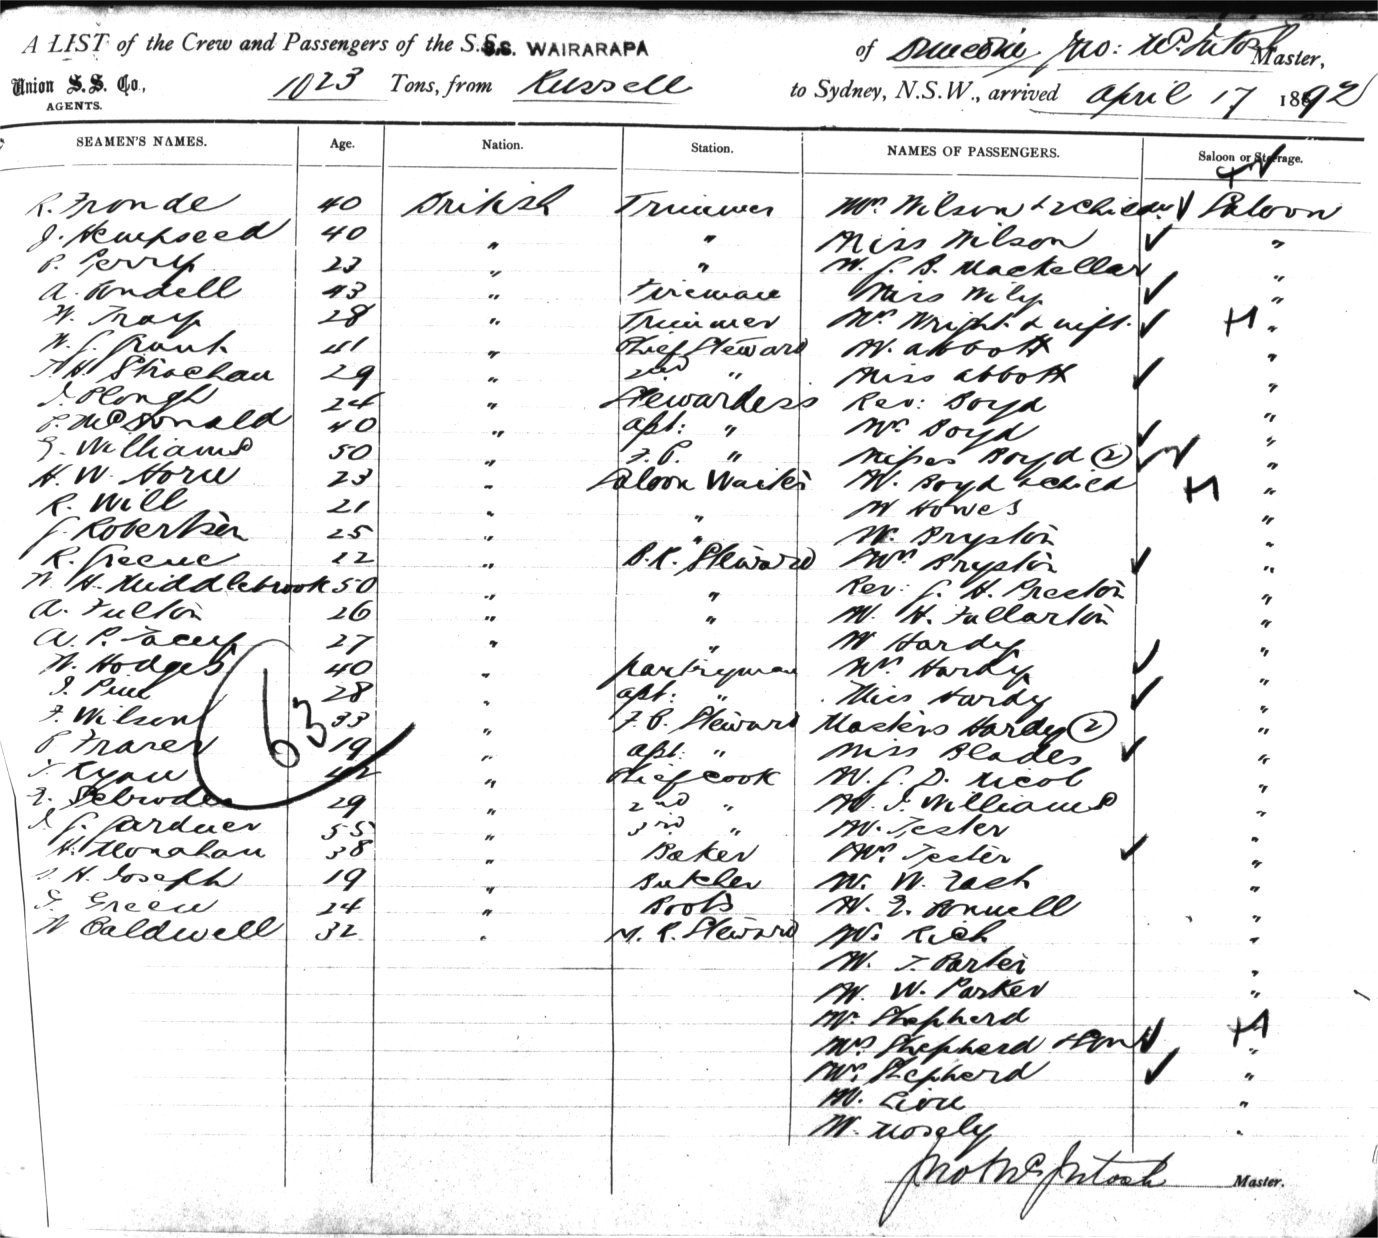 A LIST of the Crew and Passengers of the S.S. S.S. WAIRARAPA of Dunedin, Jno: McIntosh Master,
Union S.S. Co., AGENTS. 1023 Tons, from Russell to Sydney, N.S.W., arrived April 17 1892
SEAMEN'S NAMES. Age. Nation. Station. NAMES OF PASSENGERS. Saloon or Steerage.
R. Fronde 40 British Trimmer Mrs Wilson & 2 children Saloon
J. Hempseed 40 " " Miss Wilson "
P. Perry 23 " " Mr. J. B. Mackellar "
A. Dundell 43 " Fireman Miss Wily "
W. Tray 28 " Trimmer Mr Wright & wife "
W. J. Grant 41 " Chief Steward Mr. Abbott "
H. Strachan 29 " 2nd " Miss Abbott "
J. Plough 24 " Stewardess Rev: Boyd "
P. McDonald 40 " apt: " Mrs Boyd "
G. Williams 50 " F.C. " Misses Boyd (2) "
H. W. Horne 23 " Saloon Waiter Mr. Boyd & child "
R. Will 21 " " Mr Howes "
J. Robertson 25 " " Mr. Bryston "
R. Greene 22 " B.R. Steward Mrs Bryston "
W. H. Middlebrook 50 " " Rev: J. H. Preston "
A. Fulton 26 " " Mr. H. Fullarton "
A. P. Tacey 27 " " Mr Hardy "
W. Hodges 40 pantryman Mrs Hardy "
J. Pine 28 " apt: " Miss Hardy "
F. Wilson 33 " F.C. Steward Masters Hardy (2) "
P Fraser 19 " apt: " Miss Blades "
Ryan 42 " Chief Cook Mr. J. D. Nicol "
29 " 2nd " Mr. J. Williams "
J. G. Gardner 55 " 3rd " Mr. Tester "
H. Monahan 38 " Baker Mrs Tester "
H. Joseph 19 " Butcher Mr. W. Zach "
G Green 24 " Boots Mr. E. Bonnell "
W Caldwell 32 " M. R. Steward Mr. Rich "
Mr. T. Parker "
Mr. W. Parker "
Mr. Shepherd
Mrs. Shepherd "
Mrs. Shepherd "
Mr. Lion "
Mr. Mosely "
63
Jno McIntosh Master.